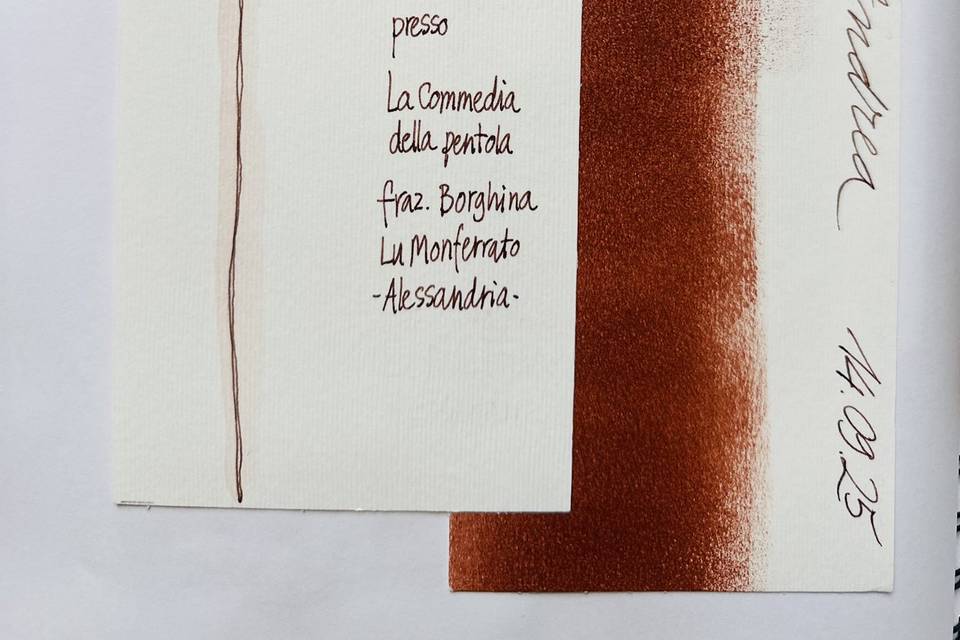 presso
La Commedia
della pentola
fraz. Borghina
Lu Monferrato
-Alessandria-
14.09.25